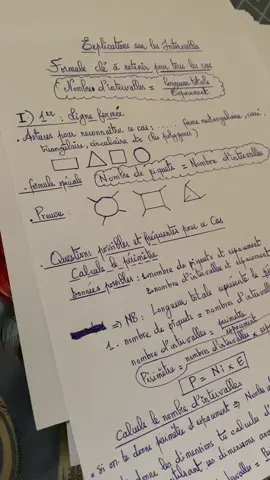 Explication sur les Intervalles
Formule clé à retenir pour tous les cas
Nombre d'intervalles = longueur totale
Espacement
I) 1er : Ligne fermée
Astuces pour reconnaître ce cas : ...... forme rectangulaire, carré
triangulaire, circulaire etc (les polygones)
. formule spéciale Nombre de piquets = Nombre d'intervalles
. Preuve
. Questions possibles et fréquentes pour ce Cas
Calculer le périmètre
données possibles : 1. nombre de piquets et espacement
2. nombre d'intervalles et espacement
=> NB : Longueur totale
1 - nombre de piquets = nombre d'intervalles
nombre d'intervalles = périmètre
espacement
Périmètre = nombre d'intervalles x
P = Ni x E
Calculer le nombre d'intervalles
. si on te donne périmètre et espacement =>
donne les dimensions tu calcules
les dimensions